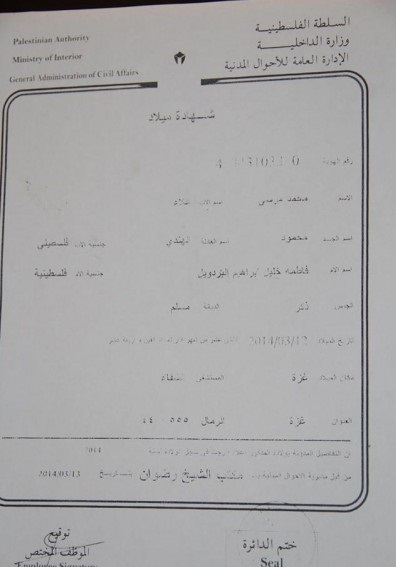 السلطة الفلسطينية
وزارة الداخلية
الإدارة العامة للأحوال المدنية
Palestinian Authority
Ministry of Interior
General Administration of Civil Affairs
شهادة ميلاد
رقم الهوية 4
الاسم محمد مرسي اسم الاب
اسم الجد محمود اسم العائلة جنسية الاب فلسطيني
اسم الام فاطمه خليل ابراهيم البردويل جنسية الام فلسطينية
الجنس ذكر الديانة مسلم
تاريخ الميلاد 2014/03/12
مكان الميلاد غزة المستشفى الشفاء
العنوان غزة الرمال ٥٥٥ ٤٤
2014
مكتب الشيخ رضوان بتاريخ 2014/03/13
توقيع
الموظف المختص
Employee Signature
ختم الدائرة
Seal